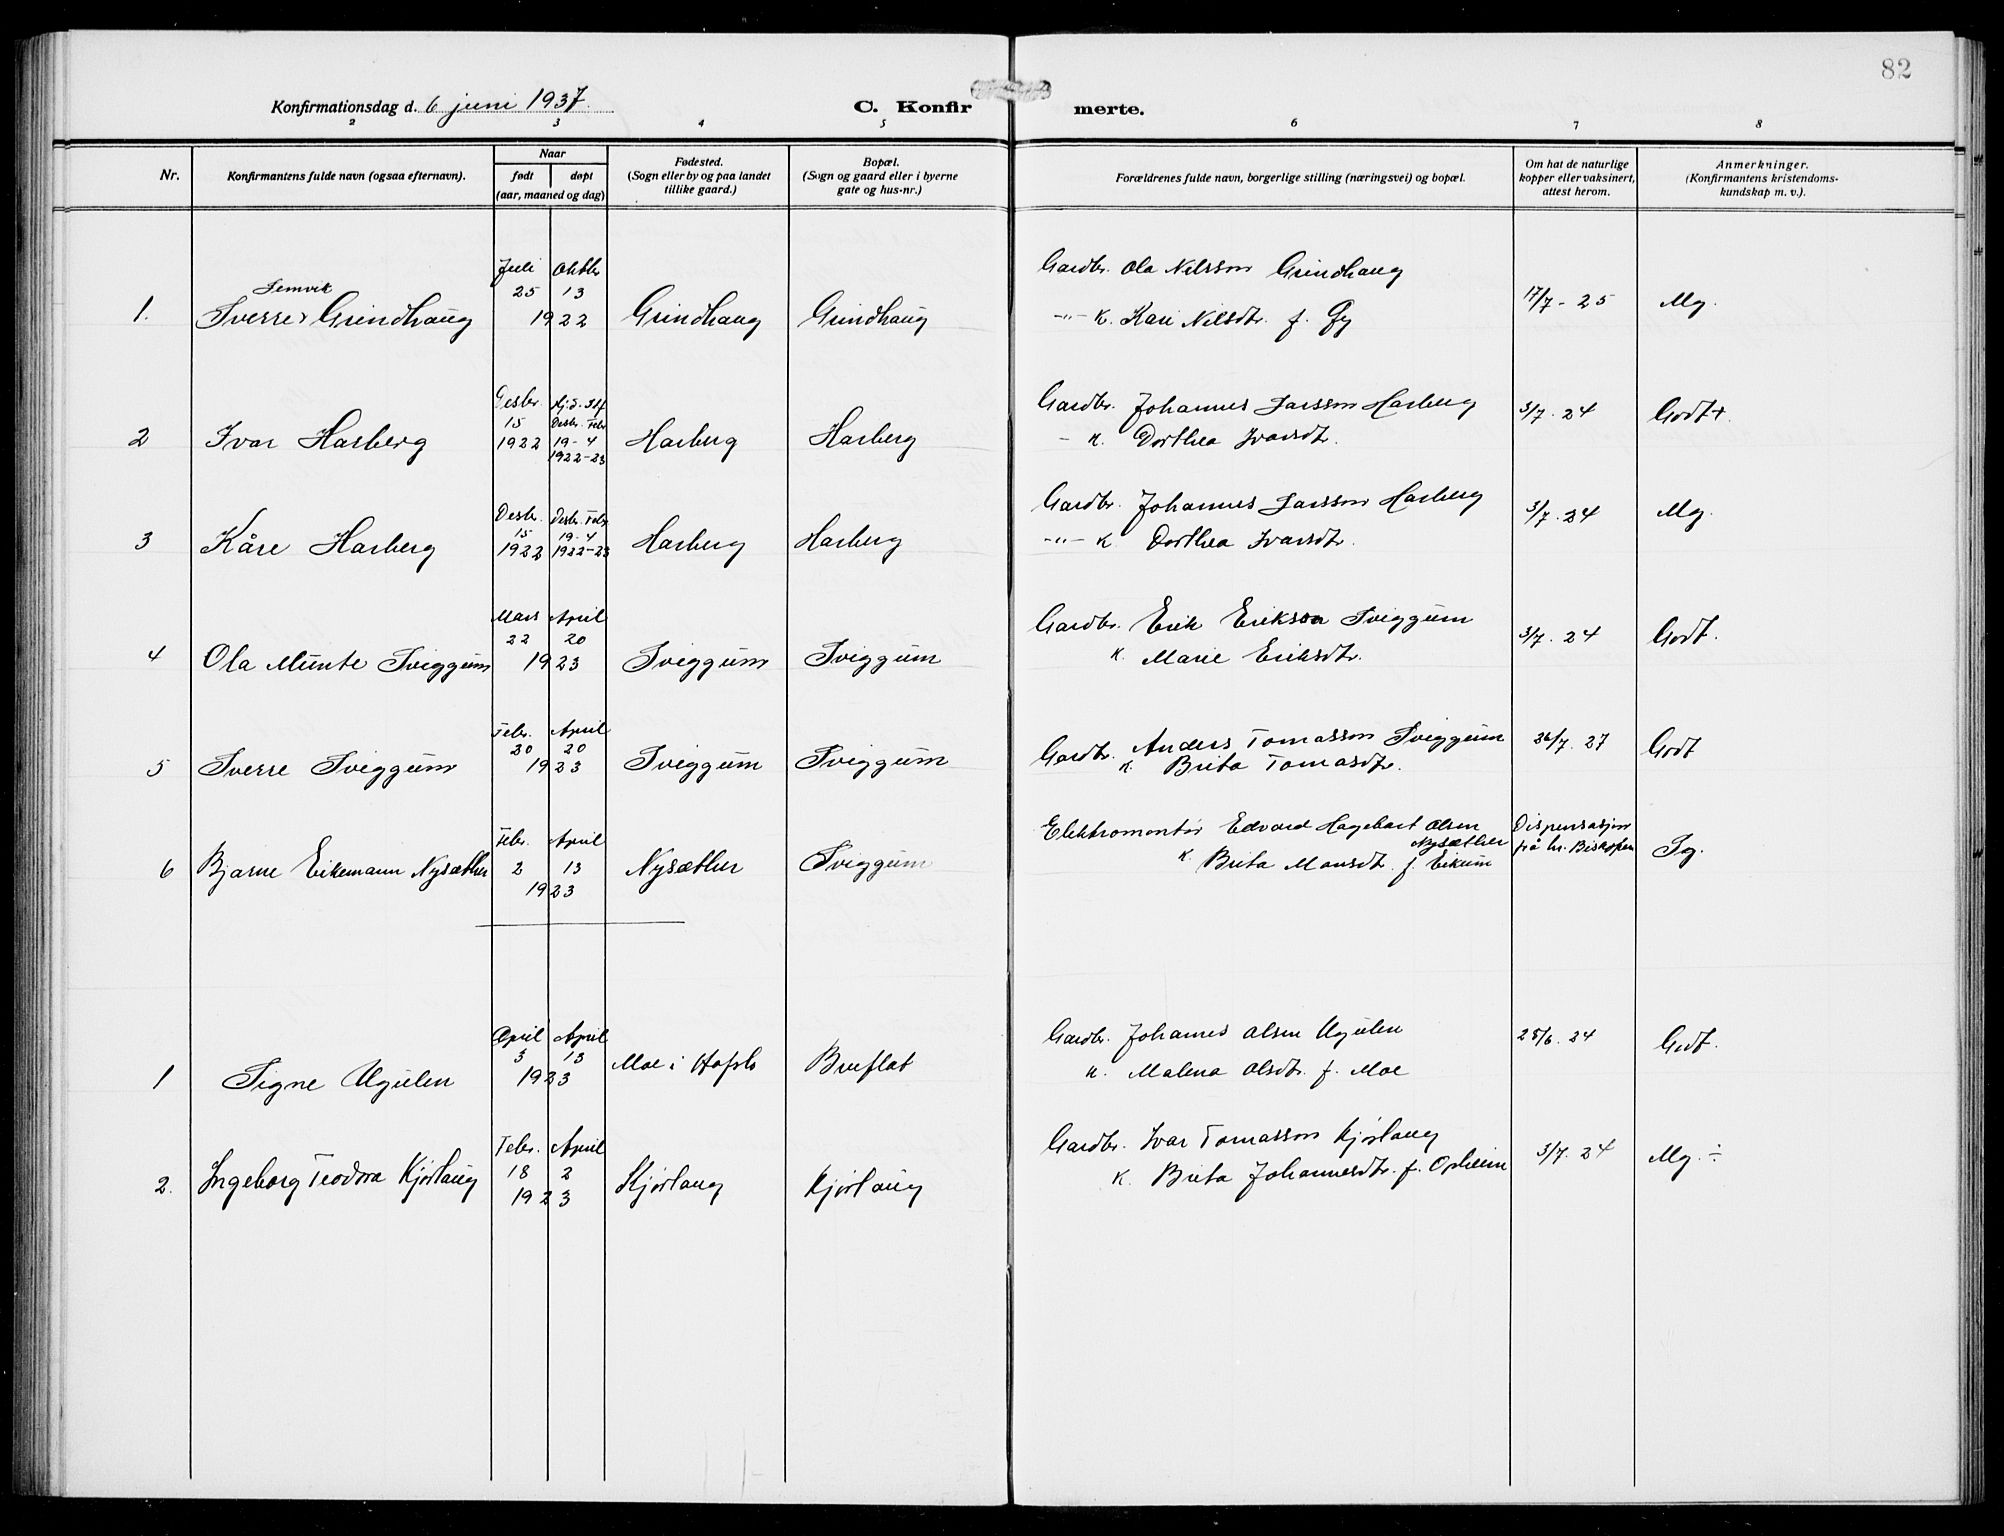 82
Konfirmationsdag d. 6 juni 1937.
C. Konfirmerte.
2 3 4 5 6 7 8
Nr.
Konfirmantens fulde navn (ogsaa efternavn).
Naar
født døpt
(aar, maaned og dag)
Fødested.
(Sogn eller by og paa landet
tillike gaard.)
Bopæl.
(Sogn og gaard eller i byerne
gate og hus-nr.)
Forældrenes fulde navn, borgerlige stilling (næringsvei) og bopæl.
Om hat de naturlige
kopper eller vaksinert,
attest herom.
Anmerkninger.
(Konfirmantens kristendoms-
kundskap m. v.).
Juli Oktbr Gardbr. Ola Nilsson Grindhaug
Semvik 25 13 17/7 - 25 Mg.
1. Sverre Grindhaug 1922 Grindhaug Grindhaug -"- K. Kari Nilsdtr. f. Gy
Desbr. Hj.d. Stf Gardbr. Johannes Larsson Harberg
15 Desbr. Febr 3/7. 24 Godt+.
2 Ivar Harberg 1922 19 - 4 Harberg Harberg - K. Dorthea Ivarsdtr.
1922-23
Desbr. Desbr. Febr Gardbr. Johannes Larsson Harberg
15 19-4 3/7. 24 Mg.
3 Kåre Harberg 1922 1922-23 Harberg Harberg -"- K Dorthea Ivarsdtr.
Mars April Gardbr. Erik Erikson Sviggum
22 20 3/7. 24 Godt.
4 Ola Munte Sviggum 1923 Sviggum Sviggum K. Marie Eriksdtr.
Febr. April Gardbr. Anders Tomasson Sviggum 26/7. 27 Godt
20 20
5 Sverre Sviggum 1923 Sviggum Sviggum K. Brita Tomasdtr.
Febr. April Elektromontør Edvard Hagebart Olsen Dispensasjon
Nysæther frå hr. Biskopen Tg.
6 Bjarne Eikemann Nysæther 2 13 Nysæther Sviggum K. Brita Monsdtr. f. Eikum
1923
April April Gardbr. Johannes Olsen Ugulen 28/6. 24 Godt.
3 13 Moe i Hafslo Bruflat
1 Signe Ugulen 1923 K. Malena Olsdtr. f. Moe
Febr. April Gardbr. Ivar Tomasson Kjørlaug
18 2 3/7. 24 Mg. ÷
2. Ingeborg Teodora Kjørlaug 1923 Kjørlaug Kjørlaug K. Brita Johannesdtr. f. Opheim